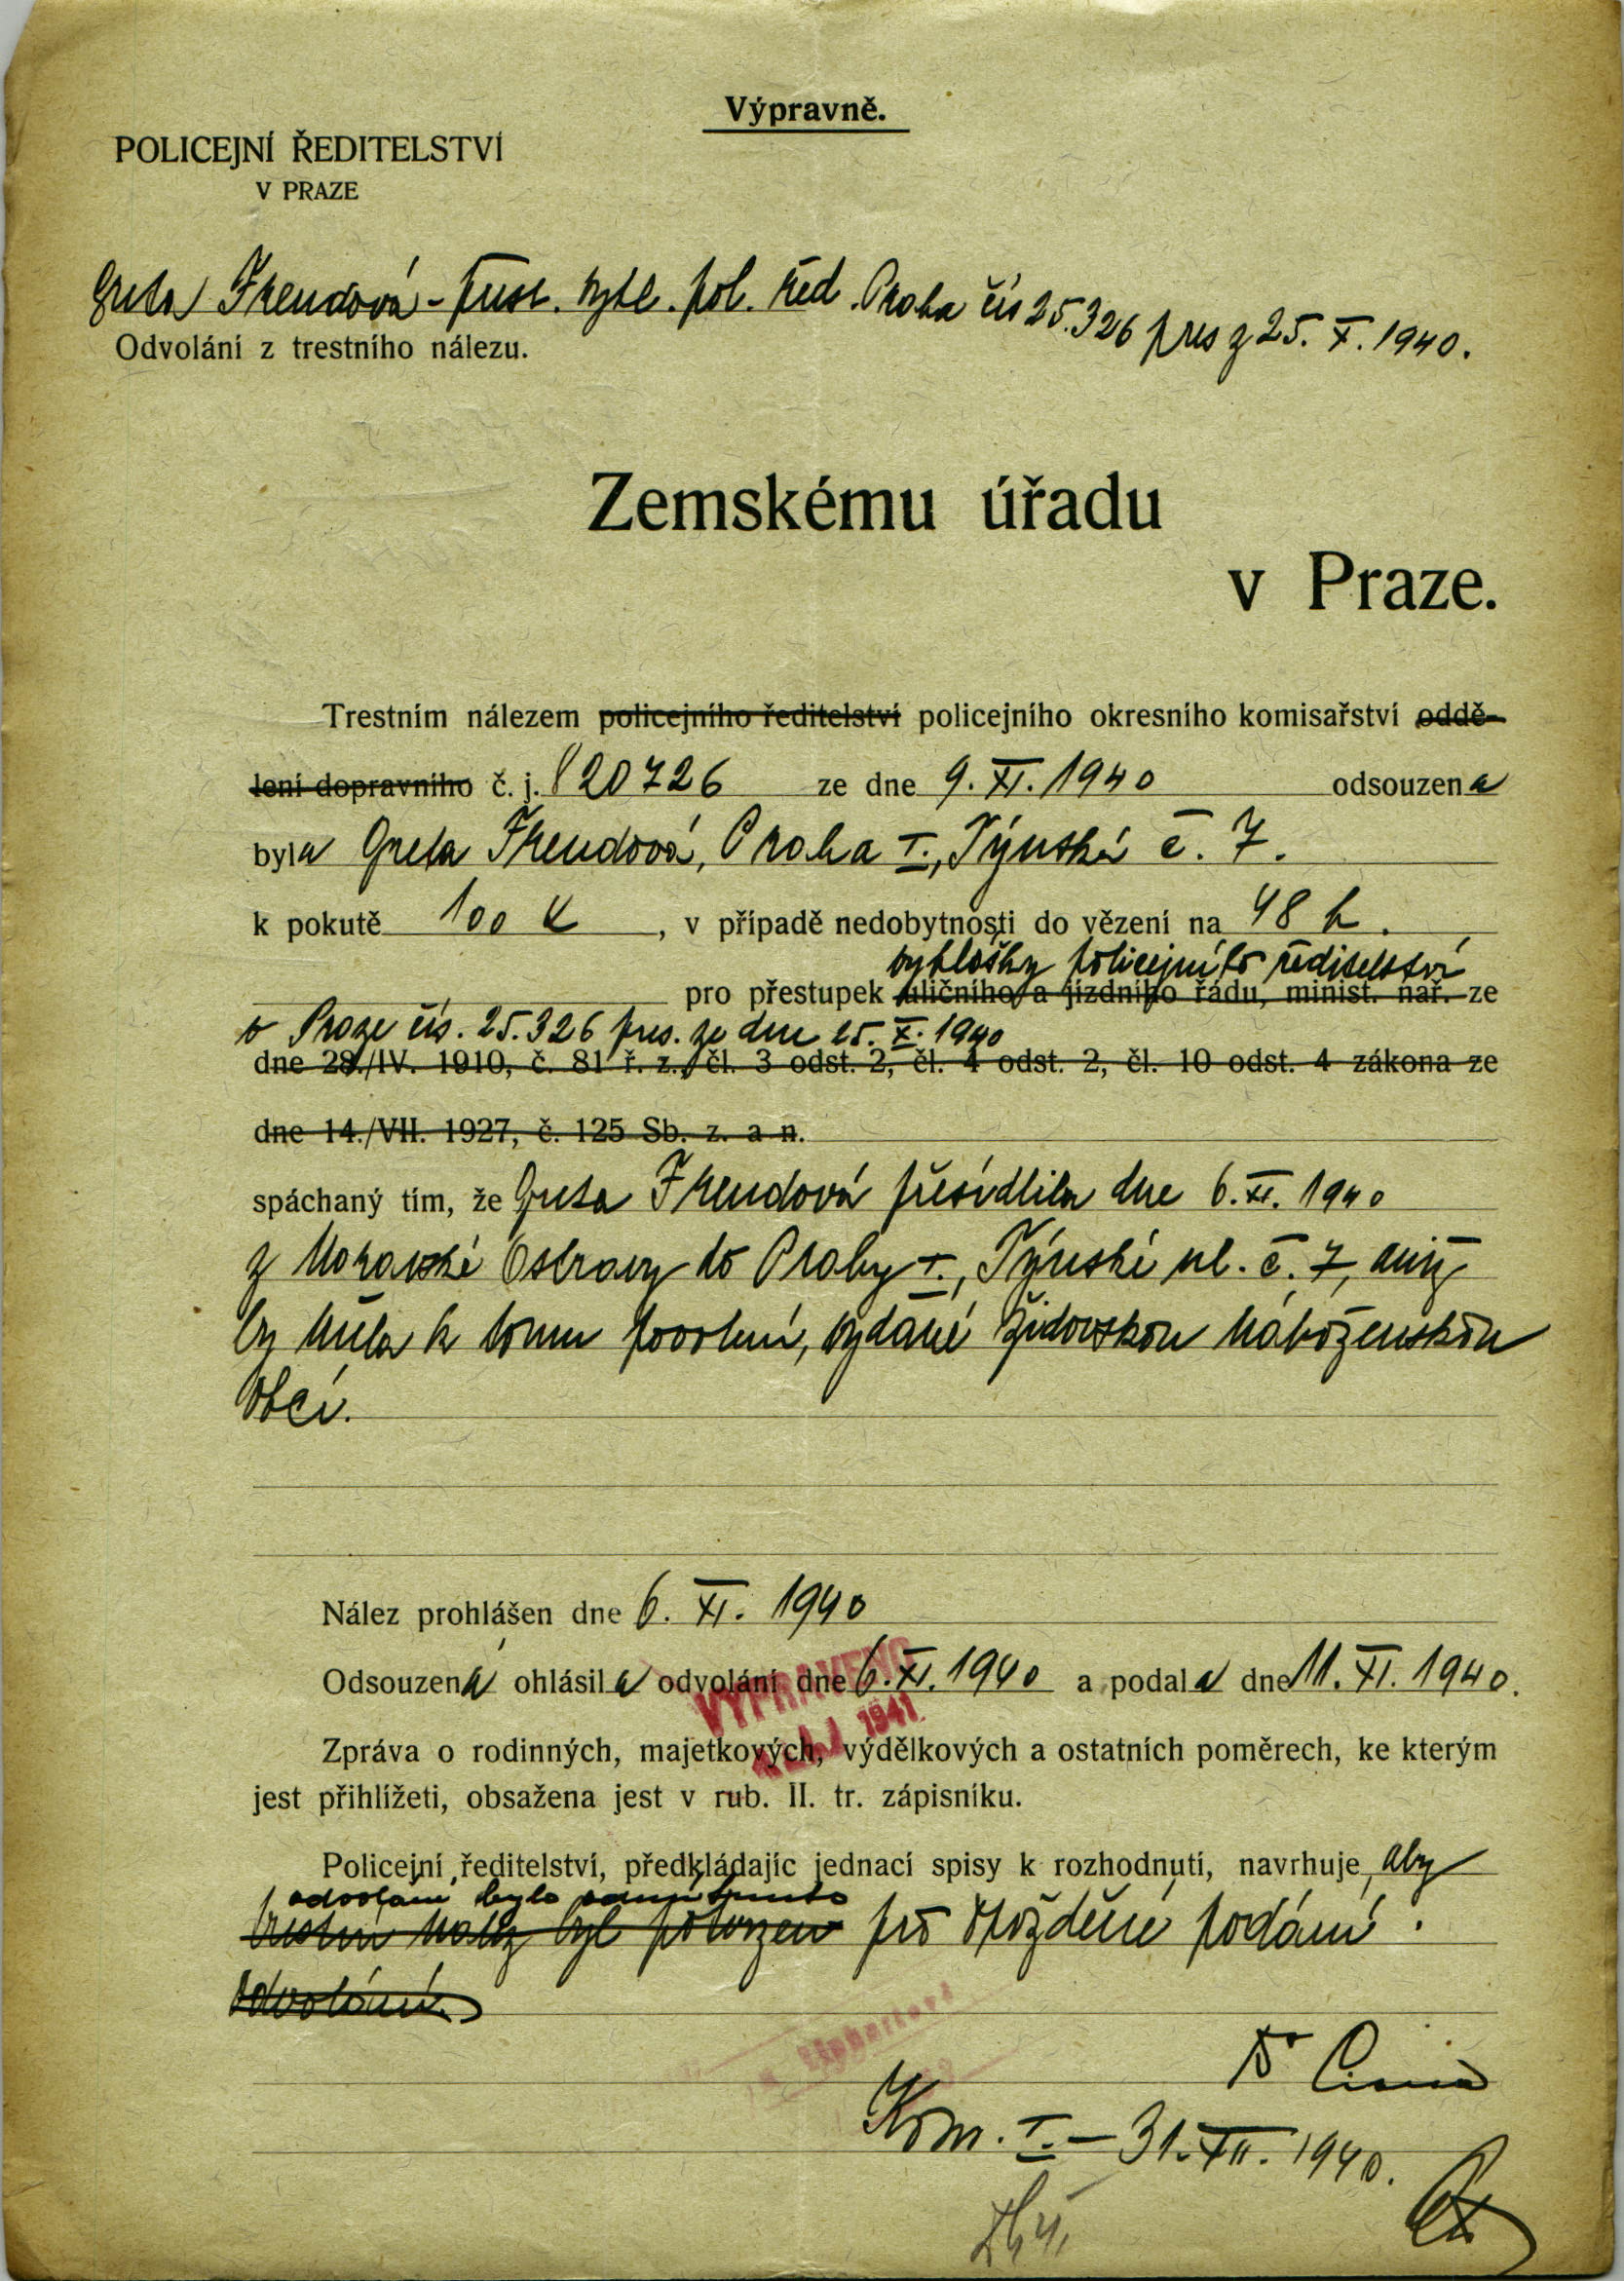 Výpravně.
POLICEJNÍ ŘEDITELSTVÍ
V PRAZE
Greta Freudová - přest. vyhl. pol. řed. Praha čís 25.326 pres z 25. X. 1940.
Odvolání z trestního nálezu.
Zemskému úřadu
v Praze.
Trestním nálezem policejního ředitelství policejního okresního komisařství oddě-
lení dopravního č. j. 820726 ze dne 9. XI. 1940 odsouzena
byla Greta Freudová, Praha I., Týnská č. 7.
k pokutě 100 K, v případě nedobytnosti do vězení na 48 h.
vyhlášky policejního ředitelství
pro přestupek uličního a jízdního řádu, minist. nař. ze
v Praze čís. 25.326 pres. ze dne 25. X. 1940
dne 28./IV. 1910, č. 81 ř. z., čl. 3 odst. 2, čl. 4 odst. 2, čl. 10 odst. 4 zákona ze
dne 14./VII. 1927, č. 125 Sb. z. a n.
spáchaný tím, že Greta Freudová přesídlila dne 6. XI. 1940
z Moravské Ostravy do Prahy I., Týnské ul. č. 7, aniž
by měla k tomu povolení, vydané židovskou náboženskou
obcí.
Nález prohlášen dne 6. XI. 1940
Odsouzená ohlásila odvolání dne 6. XI. 1940 a podala dne 11. XI. 1940.
VYPRAVENO
1941
Zpráva o rodinných, majetkových, výdělkových a ostatních poměrech, ke kterým
jest přihlížeti, obsažena jest v rub. II. tr. zápisníku.
Policejní ředitelství, předkládajíc jednací spisy k rozhodnutí, navrhuje, aby
odvolání bylo odmítnuto
trestní nález byl potvrzen pro opožděné podání.
odvolání.
Kom. I. - 31. XII. 1940.